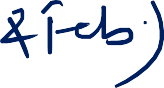 & Feb.)